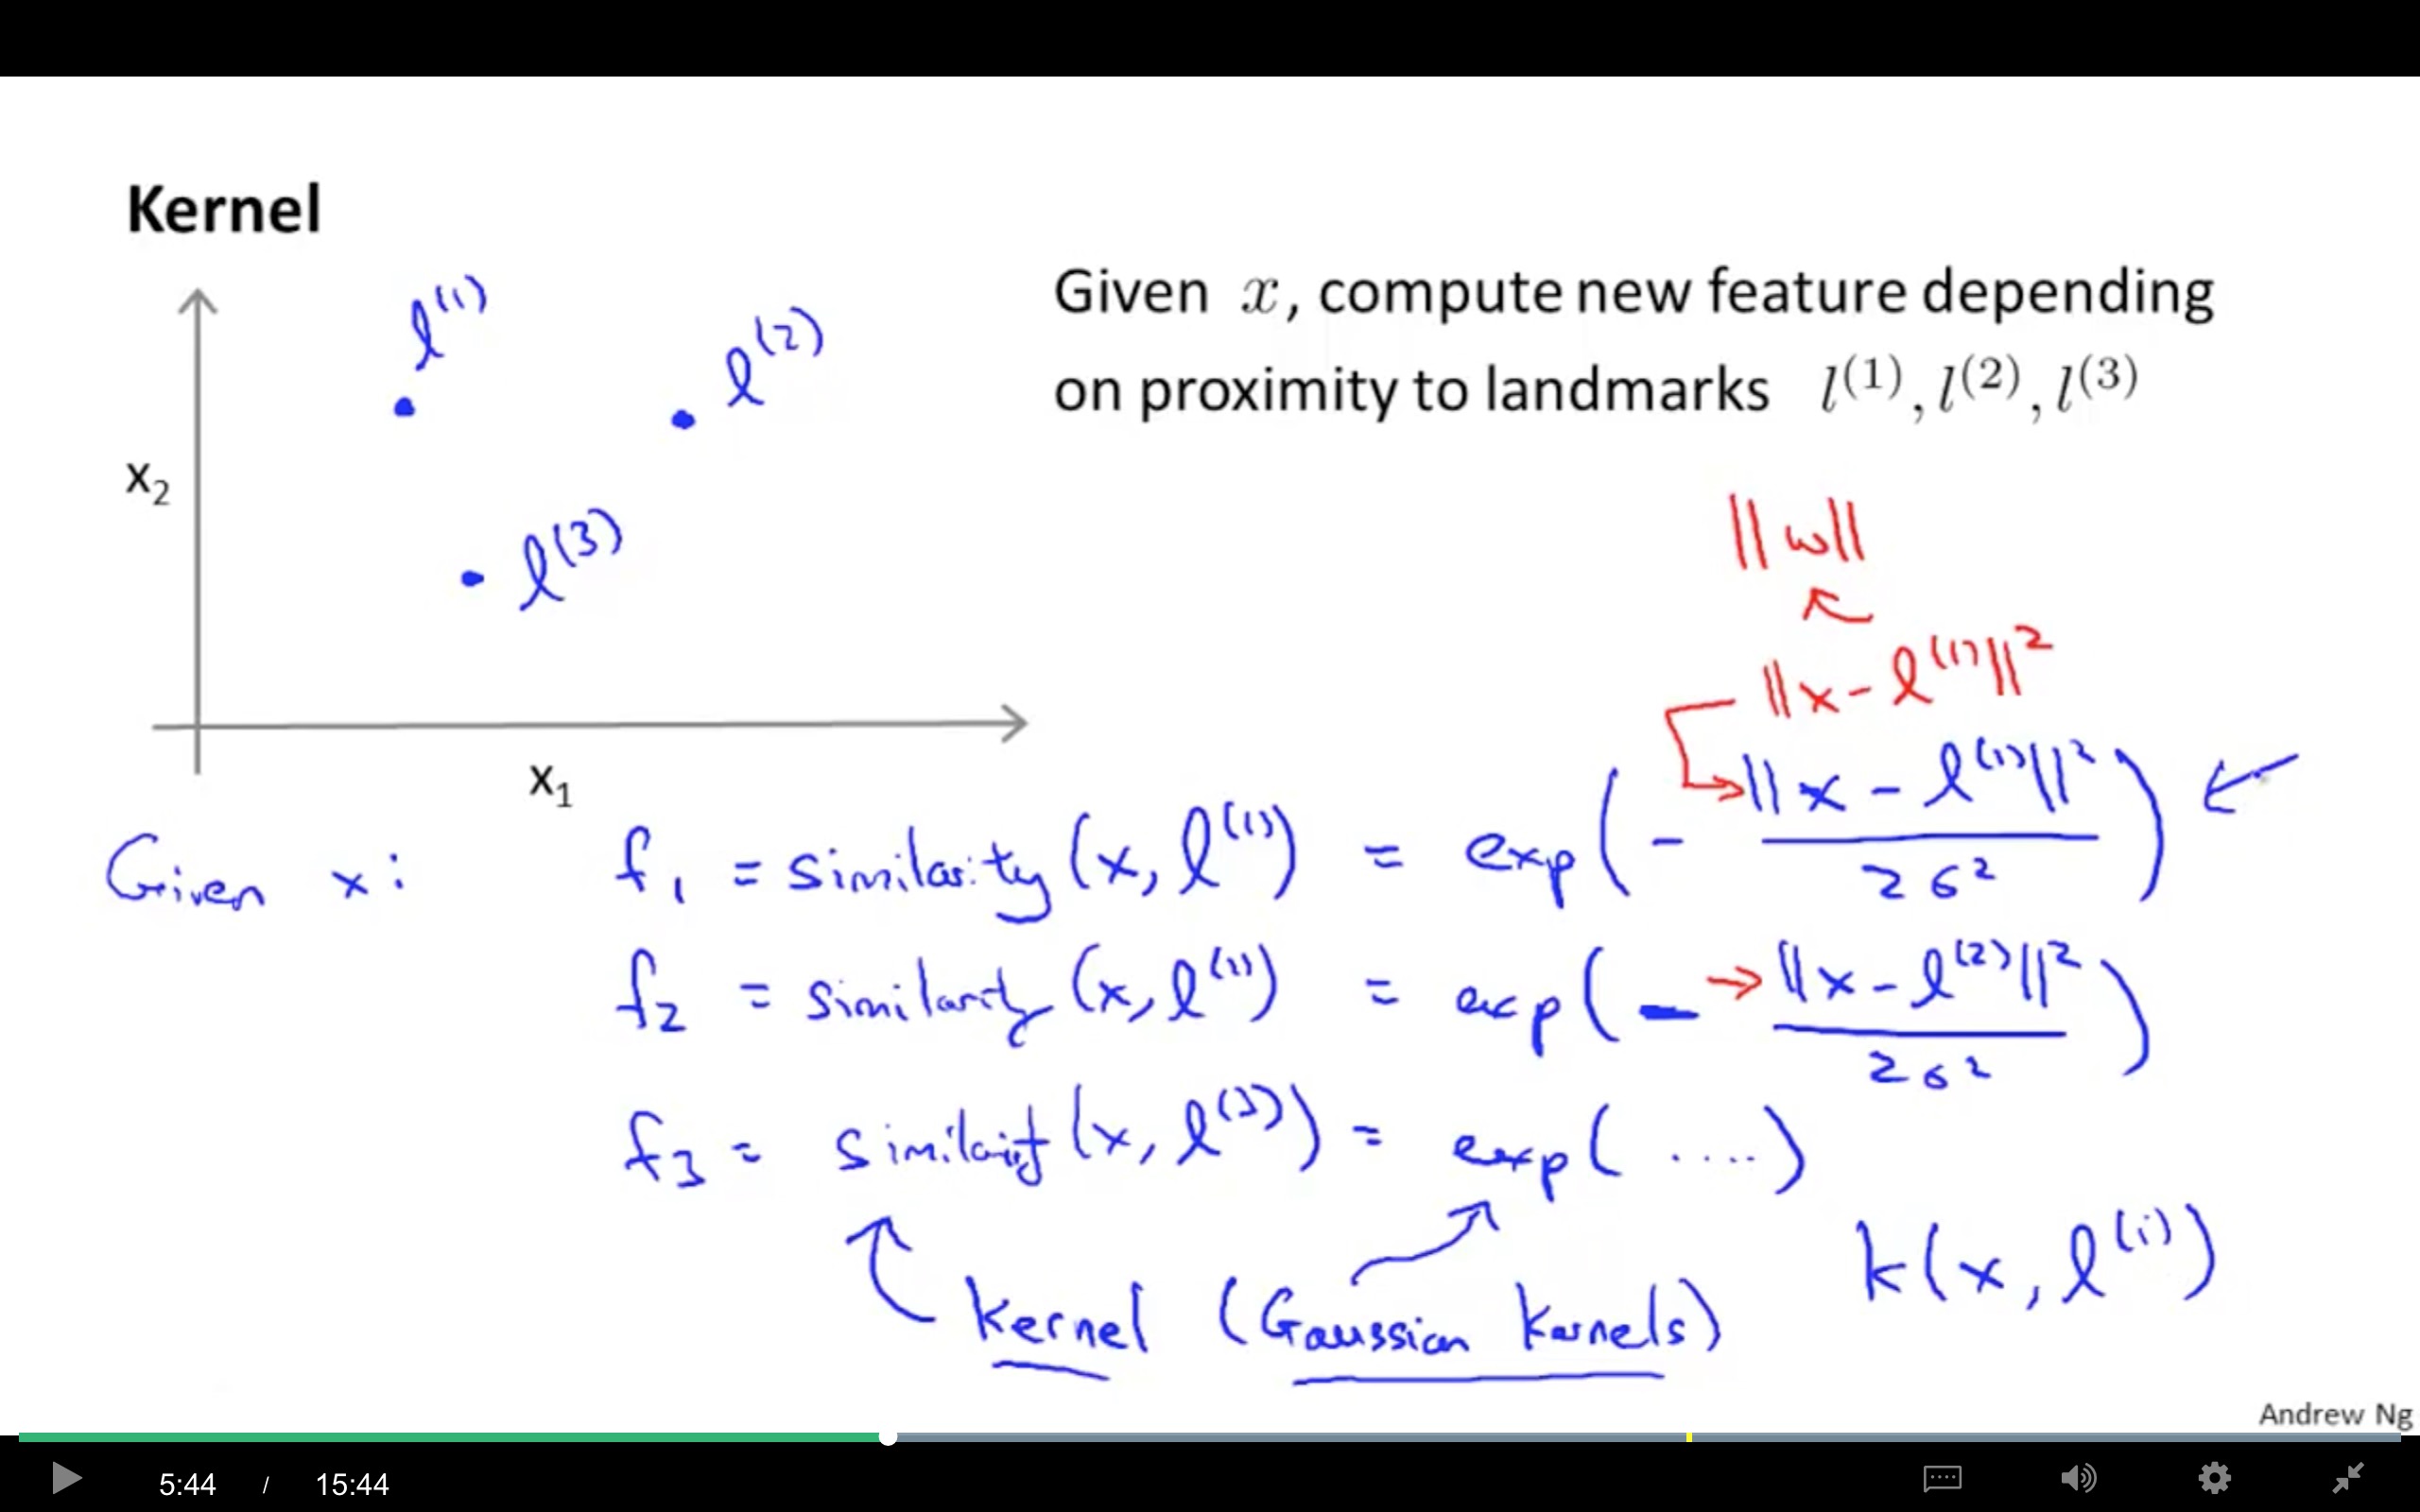 Kernel
l^(1)
l^(2)
x₂
l^(3)
x₁
Given x, compute new feature depending
on proximity to landmarks l^(1), l^(2), l^(3)
||w||
||x - l^(1)||²
Given x: f₁ = similarity(x, l^(1)) = exp(- ||x - l^(1)||² / 2σ²)
f₂ = similarity(x, l^(1)) = exp(- ||x - l^(2)||² / 2σ²)
f₃ = similarity(x, l^(3)) = exp(....)
kernel (Gaussian kernels) k(x, l^(i))
Andrew Ng
5:44 / 15:44